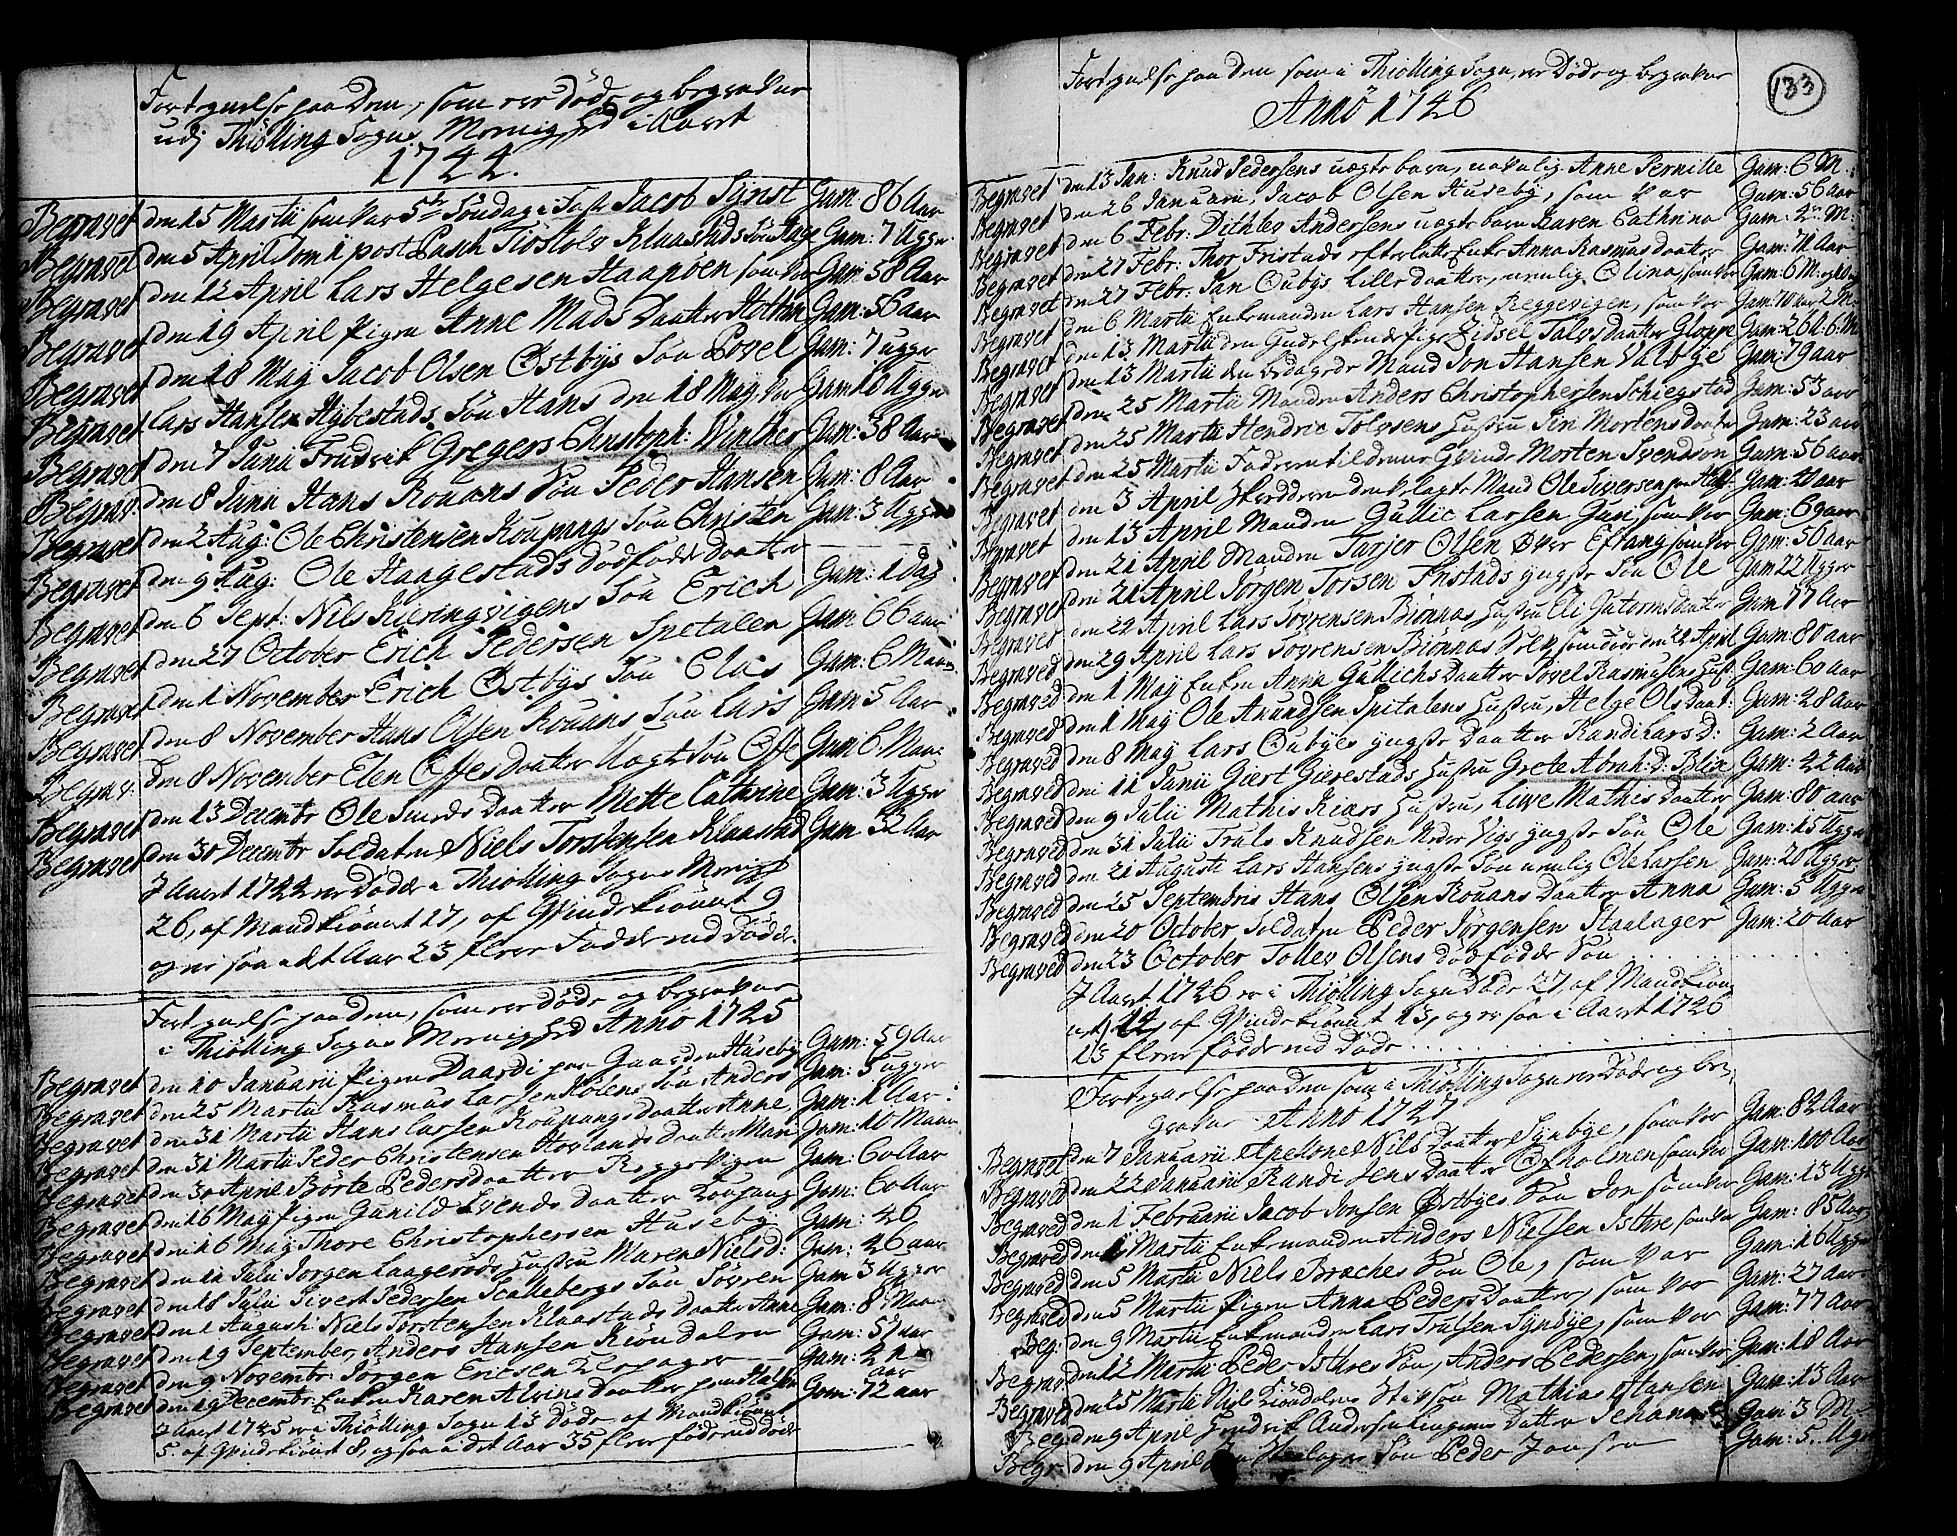 Fortegnelse paa Dem, som ere Døde og begravne
udj Thiølling Sogns Menighed i Aaret
1744.
Begravet den 15 Martii som var 5te Søndag i Fast Jacob Synst Gam 86 Aar
Begravet den 5 April Dom 1 post Pasch Tiøstolv Klaastads Søn Gam: 7 Uger
Begravet den 12 April Lars Helgesen Haapøen som var Gam: 58 Aar
Begravet den 19 April Pigen Anne Mads Daatter Gam: 56 aar
Begravet den 18 Maij Jacob Olsen Østbys Søn Povel Gam: 7 uger
Begravet Lars Hansen Søn Hans den 18 Maij, var Gam 11 Uger
Begravet den 7 Junii Gregers Christoph: Winther Gam: 38 Aar
Begrav: den 8 Junii Hans Rouans Søn Peder Hansen Gam: 8 Aar
Begravet den 2 Aug: Ole Christensen Koupangs Søn Christen Gam: 3 Uger
Begravet den 9 Aug: Ole Haagestads dødfødde Daatter
Begravet den 6 Sept: Nils Kieringvigens Søn Erich Gam: 1 Dag
Begravet den 27 October Erich Pedersen Spetalen Gam 66 aar
Begravet den 1 November Erich Østbys Søn Clas Gam: 6 Maan
Begravet den 8 November Hans Olsen Rouans Søn Lars Gam: 5 Aar
Begrav: den 8 November Elen Offes Daatter Uægte Søn Offe Gam: 6 Maan
Begravet den 13 Decembr Ole Daatter Mette Cathrine Gam: 3 Uger
Begravet den 30 Decembr Soldaten Niels Torstensen Klaastad Gam 32 Aar
J Aaret 1744 ere Døde i Thiølling Sogns Menighed
26, af Mandkiønnet 17, af Qvindekiønnet 9
og er saa i det Aar 23 flere Fødde end Døde.
Fortegnelse paa Dem, som ere Døde og begravne
i Thiølling Sogns Menighed Anno 1745
Begravet den 10 Januarii Pigen Daardi paa Gaarden Huseby Gam: 59 Aar
Begravet den 25 Martii Rasmus Larsen Kølens Søn Anders Gam: 5 uger
Begravet den 31 Martii Hans Larsen Koupangs Daatter Anne, Gam: 1 Aar
Begravet den 31 Martii Peder Christensen Hovlands Daatter Mari Gam: 10 Maan
Begravet den 30 April Børte Peders Daatter Reggevigen Gam: 60 Aar
Begravet den 16 Maij Pigen Gunild Svends Daatter Gam: 60 Aar
Begravet den 16 Maij Thore Christophersen Huseby Gam: 46
Begravet den 11 Julii Jørgen Laagerøds Hustru Maren Nielsd: Gam: 46 aar
Begravet den 18 Julii Sivert Pedersen Scallebergs Søn Søvren Gam 3 Uger
Begravet den 1 Augusti Niels Torstensen Klaastads Daatter Anne Gam: 8 Maan
Begravet den 19 September Anders Hansen Kiøndalen Gam: 57 aar
Begravet den 9 Novembr: Jørgen Ericsen Gam: 21 aar
Begravet den 19 Decembr Enken Karen Daatter paa Gam: 72 aar
J Aaret 1745 ere i Thiølling Sogn 13 Døde af Mandkiønnet
5. af Qvindekiønnet 8, og saa i det Aar 35 flere fødde end døde
133
Fortegnelse paa Dem som i Thiølling Sogn, ere Døde og begravne
Anno 1746
Begravet den 13 Jan: Knud Pedersens uægte barn, navnlig Anne Pernille Gam: 6 M.
Begravet den 26 Januarii, Jacob Olsen Huseby, som var Gam: 56 aar
Begravet den 6 Febr: Dithlev Andersens uægte barn Karen Cathrina Gam: 2 M:
Begravet den 27 Febr: Thor Fristads efterlatte Enke Anna Rasmus daatter Gam: 71 Aar
Begravet den 27 Febr: Jan Oubys lille Daatter, nemlig Olina, som var Gam: 6 M.
Begravet den 6 Martii Enkemanden Lars Hansen Reggevigen, som var Gam: 70 aar 2 M.
Begravet den 13 Martii den Gudelskende Pige Sidsel Talvs daatter Gloppe Gam: 26 A. 6: M
Begravet den 13 Martii den bedagede Mand Jon Hansen Valbye Gam: 79 aar
Begravet den 25 Martii Manden Anders Christophersen Schiegstad Gam: 53 aar
Begravet den 25 Martii Hendric Tolvsens Hustru Siri Mortens daatter Gam: 23 aar
Begravet den 25 Martii Faderen til denne Qvinde Morten Svendsøn Gam: 56 aar
Begravet den 3 April Skredderen den velagte Mand Ole Siversen Gam: 40 aar
Begravet den 13 April Manden Gullic Larsen Gui, som var Gam: 69 aar
Begravet den 21 April Manden Tarjer Olsen Øvre Eftang som var Gam: 56 aar
Begravet den 21 April Jørgen Torsen Fristads yngste Søn Ole Gam 22 Uger
Begravet den 22 April Lars Sovrensen Biønnas Hustru Eli Gutorms daatter Gam 77 Aar
Begraved den 29 April Lars Sovrensen Biønnas Selv som døde den 22 April Gam: 80 aar
Begraved den 1 Maij Enken Anna Gullichs Daatter Povel Rasmusens Gam: 60 aar
Begraved den 1 Maij Ole Amundsen Spitalens Hustru, Helge Ols Daat: Gam: 48 Aar
Begraved den 8 Maij Lars Oubyes yngste Daatter Randi Lars D: Gam: 2 Aar
Begraved den 11 Junii Giert Gierestads Hustru Grete Abrah: D: Blix Gam: 42 Aar
Begraved den 9 Julii Mathis Kiærs Hustru, Live Mathis Daatter Gam: 80 aar
Begraved den 31 Julii Truls Knudsen Neder Vigs yngste Søn Ole Gam: 15 Uger
Begraved den 21 Augusti Lars Hansens yngste Søn nemlig Ole Larsen Gam: 20 Uger
Begraved den 25 Septembris Hans Olsen Rouans Daatter Anna Gam: 5 Uger
Begraved den 20 October Soldaten Peder Jørgensen Haalager Gam: 20 Aar
Begraved den 23 October Tollev Olsens dødfødde Søn
J Aaret 1746 er i Thiølling Sogn Døde 27, af Mandkiøn
net 14, af Qvindekiønnet 13, og er saa i Aaret 1746
23 flere fødde end Døde
Fortegnelse paa Dem som i Thiølling Sogn ere Døde og be,
gravne Anno 1747
Begravet den 7 Januarii Apellone Niels Daatter Synbye, som var Gam: 82 Aar
Begraved den 22 Januarii Randi Jens Daatter Øfholmen som var Gam: 100 Aar
Begraved den 1 Februarii Jacob Jonsen Østbyes Søn Jon som var Gam: 13 Uger
Begraved den Martii Enkemanden Anders Nielsen Isthre, som var Gam: 85 Aar
Begraved den 5 Martii Niels Braches Søn Ole, som var Gam: 16 Uger
Begraved den 5 Martii Pigen Anna Peders Daatter, som var Gam: 27 Aar
Beg: den 9 Martii Enkemanden Lars Trulsen Synbye, som var Gam: 77 Aar
Begrav den 12 Martii: Peder Isthres Søn, Anders Pedersen, som var Gam: 18 Aar
Begraved den 25 Martii Nils Kiøndalens Stifsøn Mathias Hansen Gam: 13 Aar
Beg: den 9 April Hendrik Andersen Datter Jehana Gam 3 M.
Begr: den 9 April Søn Peder Jansen Gam: 5. Uger